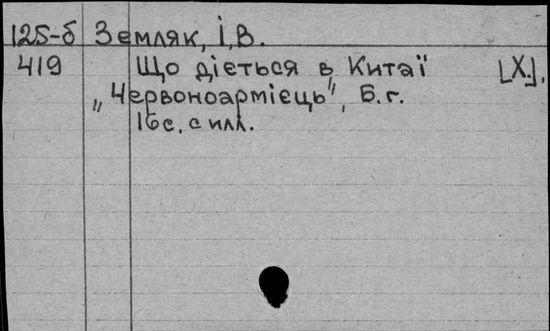 125-б Земляк, І, В.
419 Що діється в Китаї [Х.].
„Червоноармієць", Б. г.
16 с. с илл.